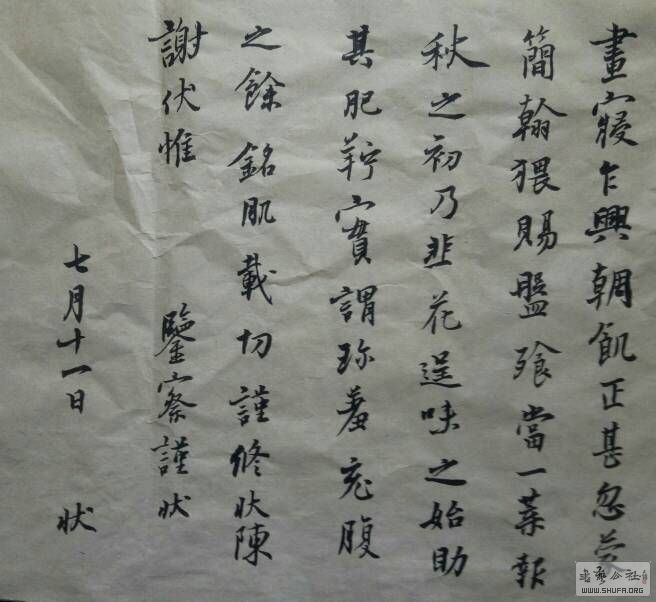 晝寢乍興輖飢正甚忽蒙
簡翰猥賜盤飱當一葉報
秋之初乃韭花逞味之始助
其肥羜實謂珍羞充腹
之餘銘肌載切謹修状陳
謝伏惟 鑒察謹状
七月十一日 状
書藝公社
WWW.SHUFA.ORG